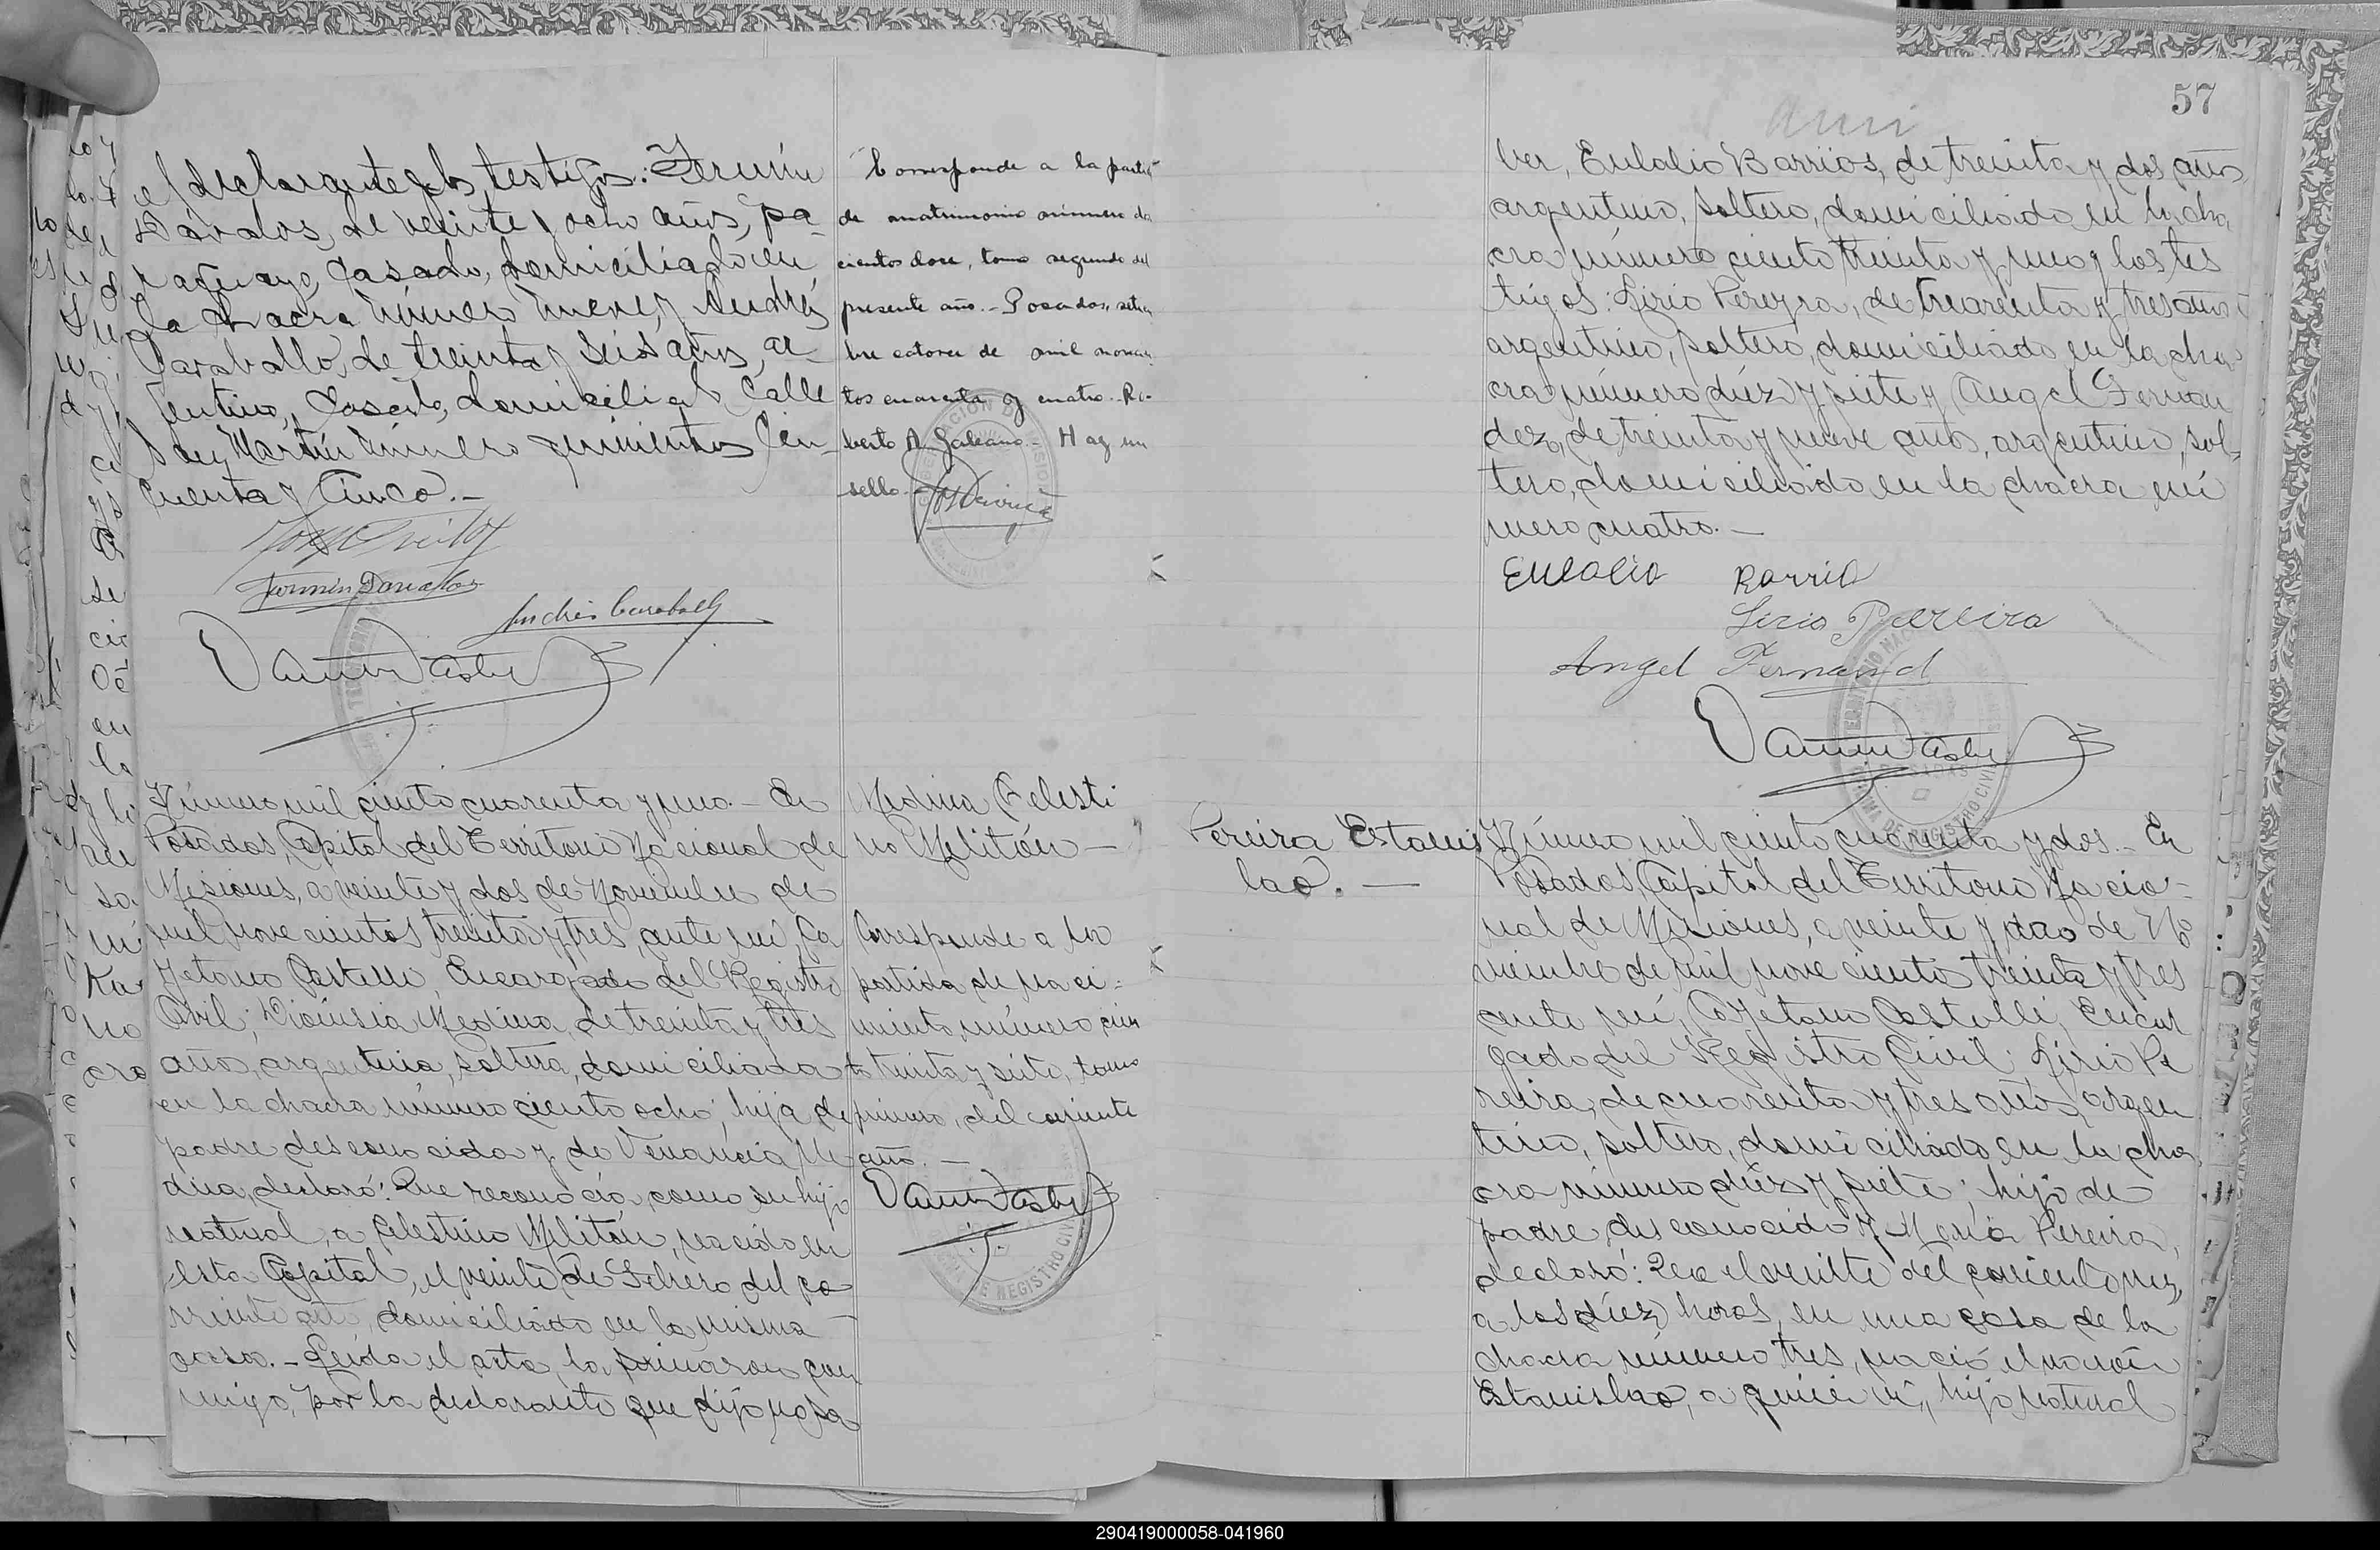 el declarante y los testigos: Fermín
Dávalos, de veinte y ocho años, pa-
raguayo, casado, domiciliado en
la chacra número nueve, y Andrés
Caraballo, de treinta y seis años, ar-
gentino, casado, domiciliado Calle
San Martín número quinientos cin-
cuenta y cinco.-
Fermín Dávalos
Andrés Caraball
Corresponde a la partida
de matrimonio número dos
cientos doce, tomo segundo del
presente año.- Posadas, setiem
bre catorce de mil novecien
tos cuarenta y cuatro.- Ro-
berto A. Galeano.- Hay un
sello.-
Número mil ciento cuarenta y uno.- En
Posadas, Capital del Territorio Nacional de
Misiones, a veinte y dos de Noviembre de
mil nove cientos treinta y tres, ante mí, Ca
yetano Castelli, Encargado del Registro
Civil; Dionisia Medina, de treinta y tres
años, argentina, soltera, domiciliada
en la chacra número ciento ocho, hija de
padre desconocido y de Venancia Me
dina, declaró: Que reconocía, como su hijo
natural, a Celestino Melitón, nacido en
esta Capital, el veinte de Febrero del co
rriente año, domiciliado en la misma
casa.- Leída el acta, la firmaron con
migo, por la declarante que dijo no sa
Medina Celesti
no Melitón -
Corresponde a la
partida de naci-
miento número cien
to treinta y siete, tomo
primero, del corriente
año. -
57
ber, Eulalio Barrios, de treinta y dos años,
argentino, soltero, domiciliado en la cha
cra número ciento treinta y uno y los tes
tigos: Lirio Pereyra, de trearenta y tres años
argentino, soltero, domiciliado en la cha-
cra número diez y siete y Angel Fernan
dez, de treinta y nueve años, argentino, sol-
tero, domiciliado en la chacra nú
mero cuatro.-
Eulalio Barrio
Lirio Pereira
Angel Fernand
Pereira Estanis
lao. -
Número mil ciento cuarenta y dos.- En
Posadas, Capital del Territorio Nacio-
nal de Misiones, a veinte y dos de No
viembre de mil nove ciento treinta y tres
ante mí, Cayetano Castelli, Encar
gado del Registro Civil: Lirio Pe
reira, de cuarenta y tres años, argen
tino, soltero, domiciliado en la cha
cra número diez y siete; hijo de
padre desconocido y María Pereira,
declaró: Que el veinte del corriente mes,
a las diez horas, en una casa de la
chacra número tres, nació el varón
Estanislao, a quien ví, hijo natural
290419000058-041960